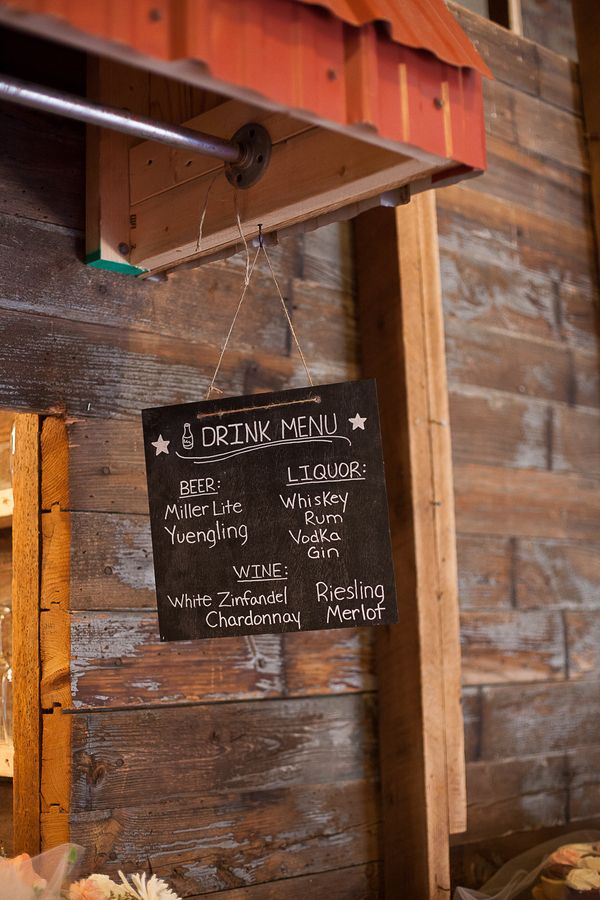 DRINK MENU
BEER:
Miller Lite
Yuengling
LIQUOR:
Whiskey
Rum
Vodka
Gin
WINE:
White Zinfandel
Chardonnay
Riesling
Merlot